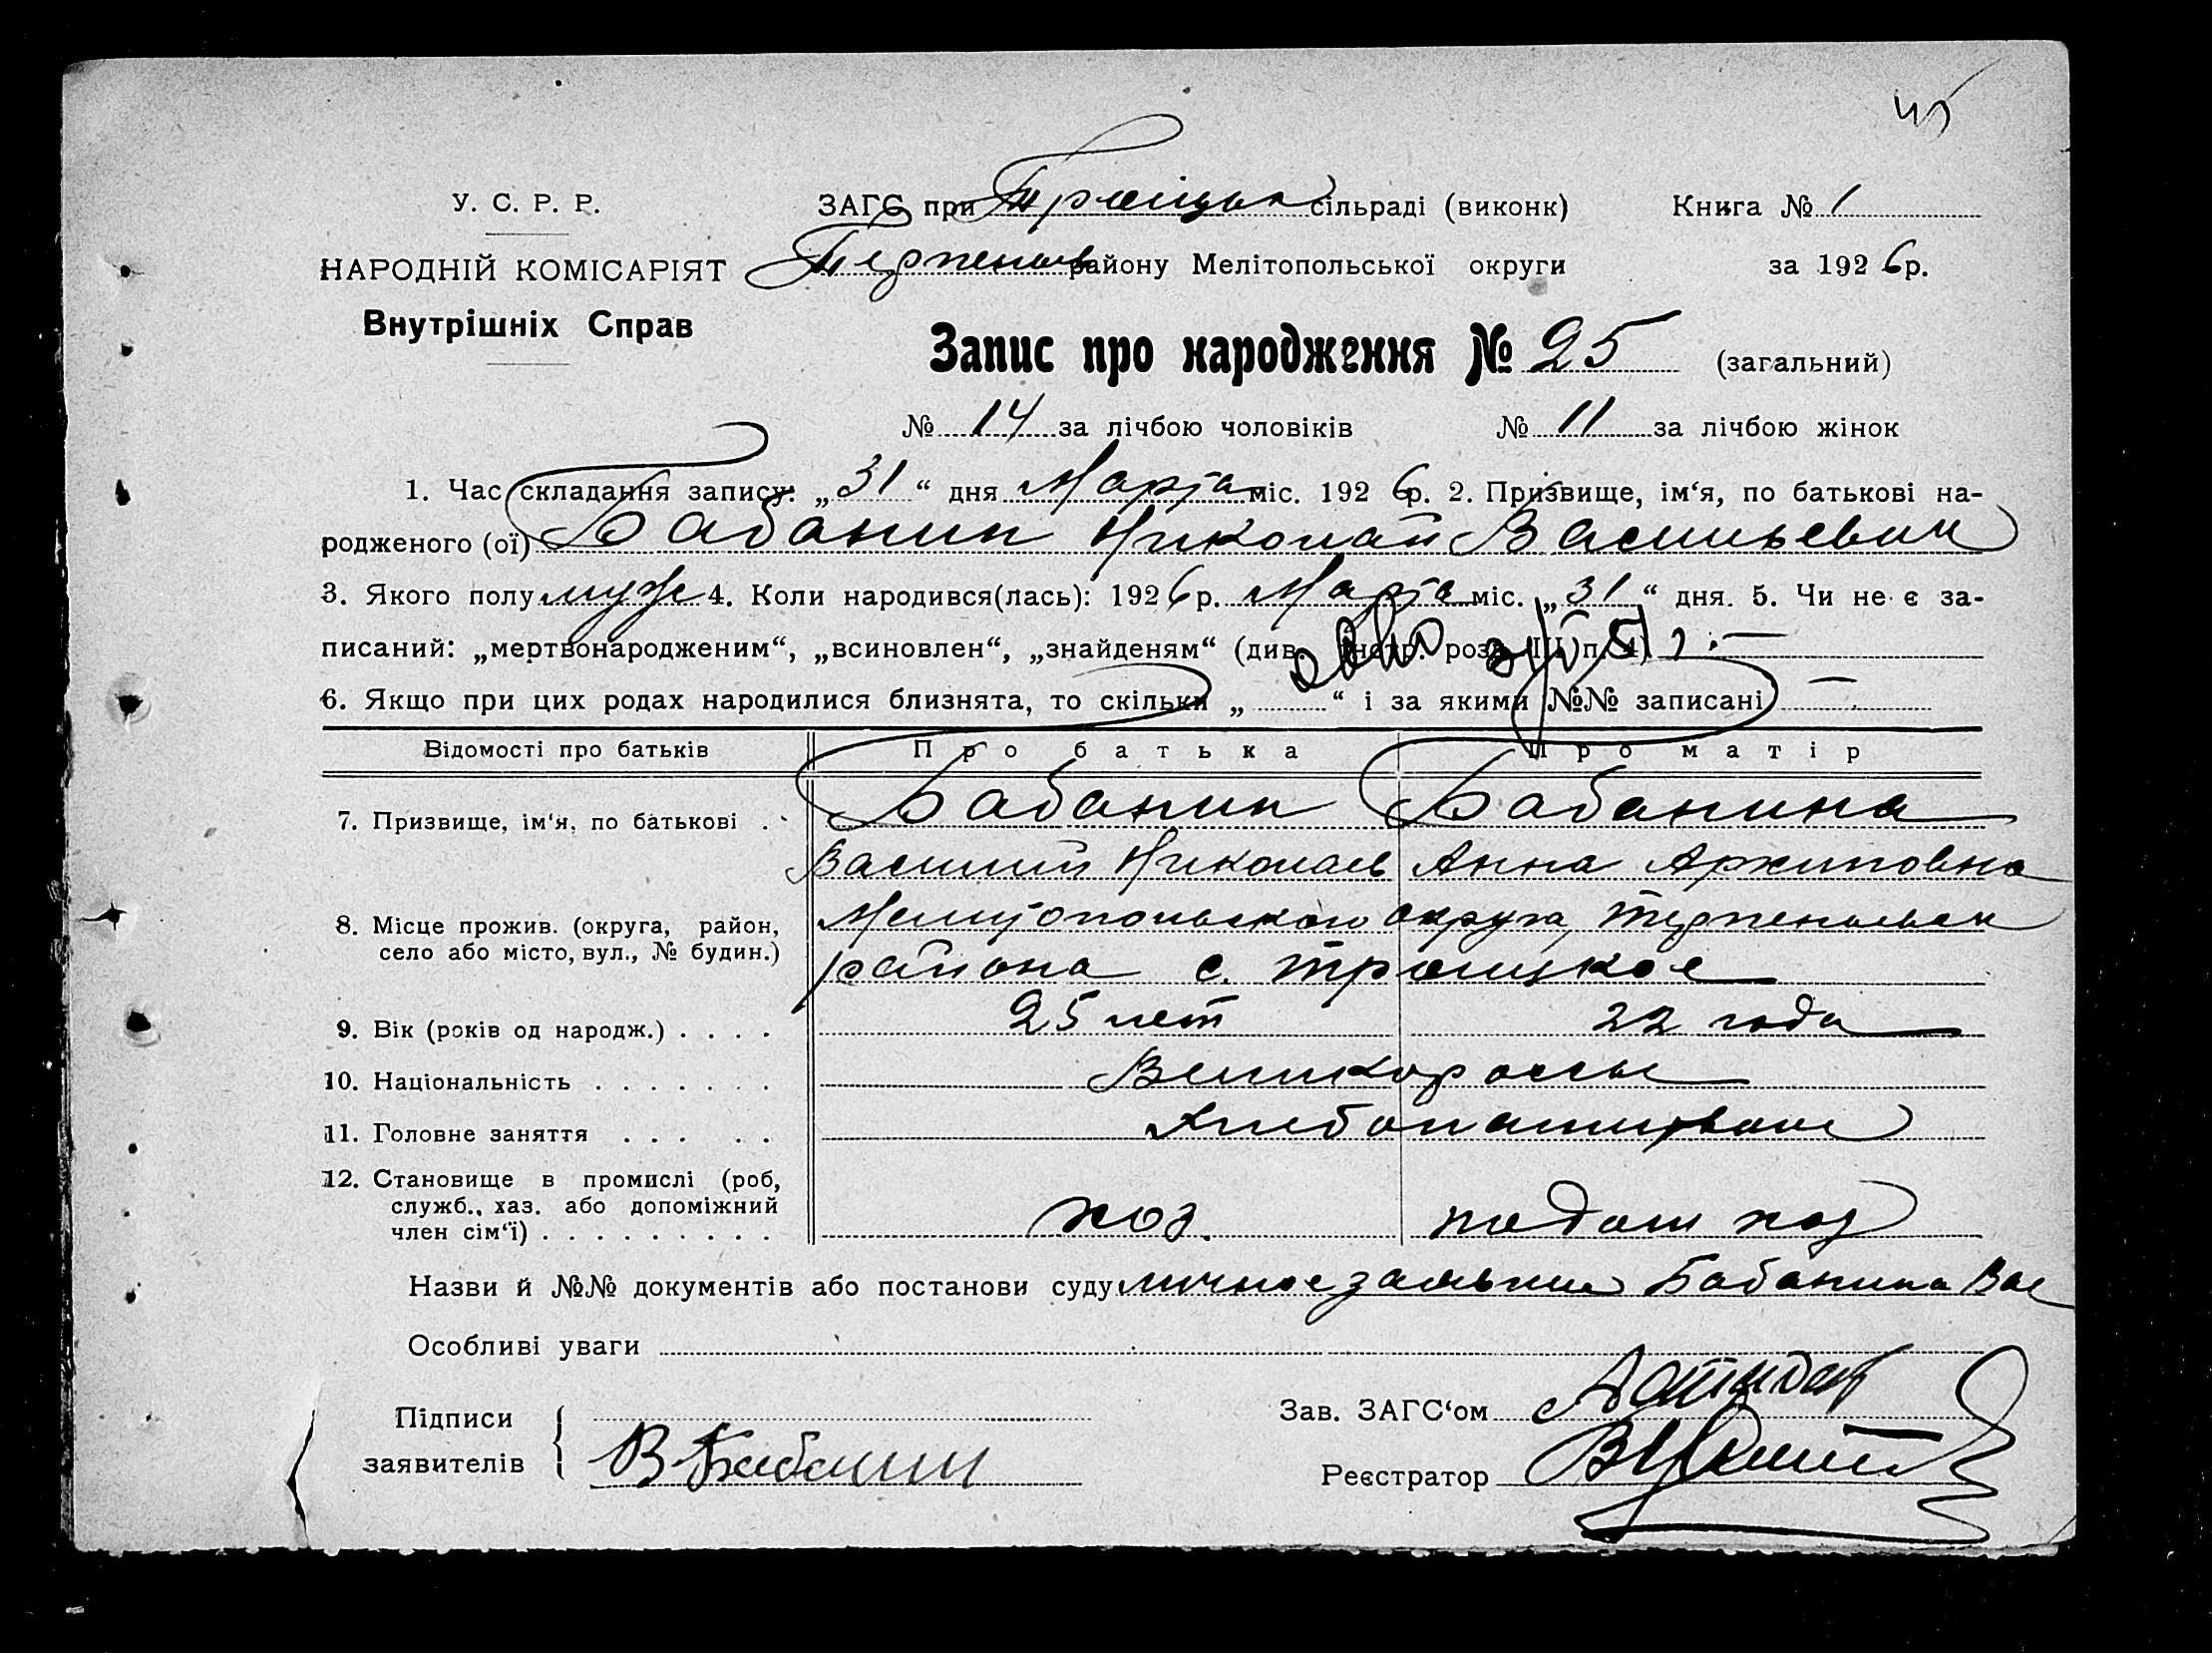 45
У. С. Р. Р. ЗАГС при Троицьк сільраді (виконк) Книга № 1
НАРОДНІЙ КОМІСАРІЯТ Терпеньев району Мелітопольської округи за 1926 р.
Внутрішніх Справ
Запис про народження № 25 (загальний)
№ 14 за лічбою чоловіків № 11 за лічбою жінок
1. Час складання запису: „31“ дня Марта міс. 1926 р. 2. Призвище, ім‘я, по батькові на-
родженого (ої) Бабанин Николай Васильевич
3. Якого полу муж 4. Коли народився(лась): 1926 р. Марта міс. „31“ дня. 5. Чи не є за-
писаний: „мертвонародженим“, „всиновлен“, „знайденям“ (див. інстр. розд. III п. 4) —
6. Якщо при цих родах народилися близнята, то скільки „ “ і за якими №№ записані —
Відомості про батьків Про батька Про матір
7. Призвище, ім‘я, по батькові . . Бабанин Бабанина
Василий Николаев Анна Архиповна
8. Місце прожив. (округа, район, Мелитопольского округа, Терпеньевск
село або місто, вул., № будин.) района с. Троицкое
9. Вік (років од народж.) . . . . 25 лет 22 года
10. Національність . . . . . . . Великороссы
11. Головне заняття . . . . . Хлебопашество
12. Становище в промислі (роб,
служб., хаз. або допоміжний
член сім‘ї) . . . . . . . . . хоз. хоз
Назви й №№ документів або постанови суду личное Бабанина Вас
Особливі уваги
Підписи Зав. ЗАГС‘ом
заявителів В Бабанин
Реєстратор